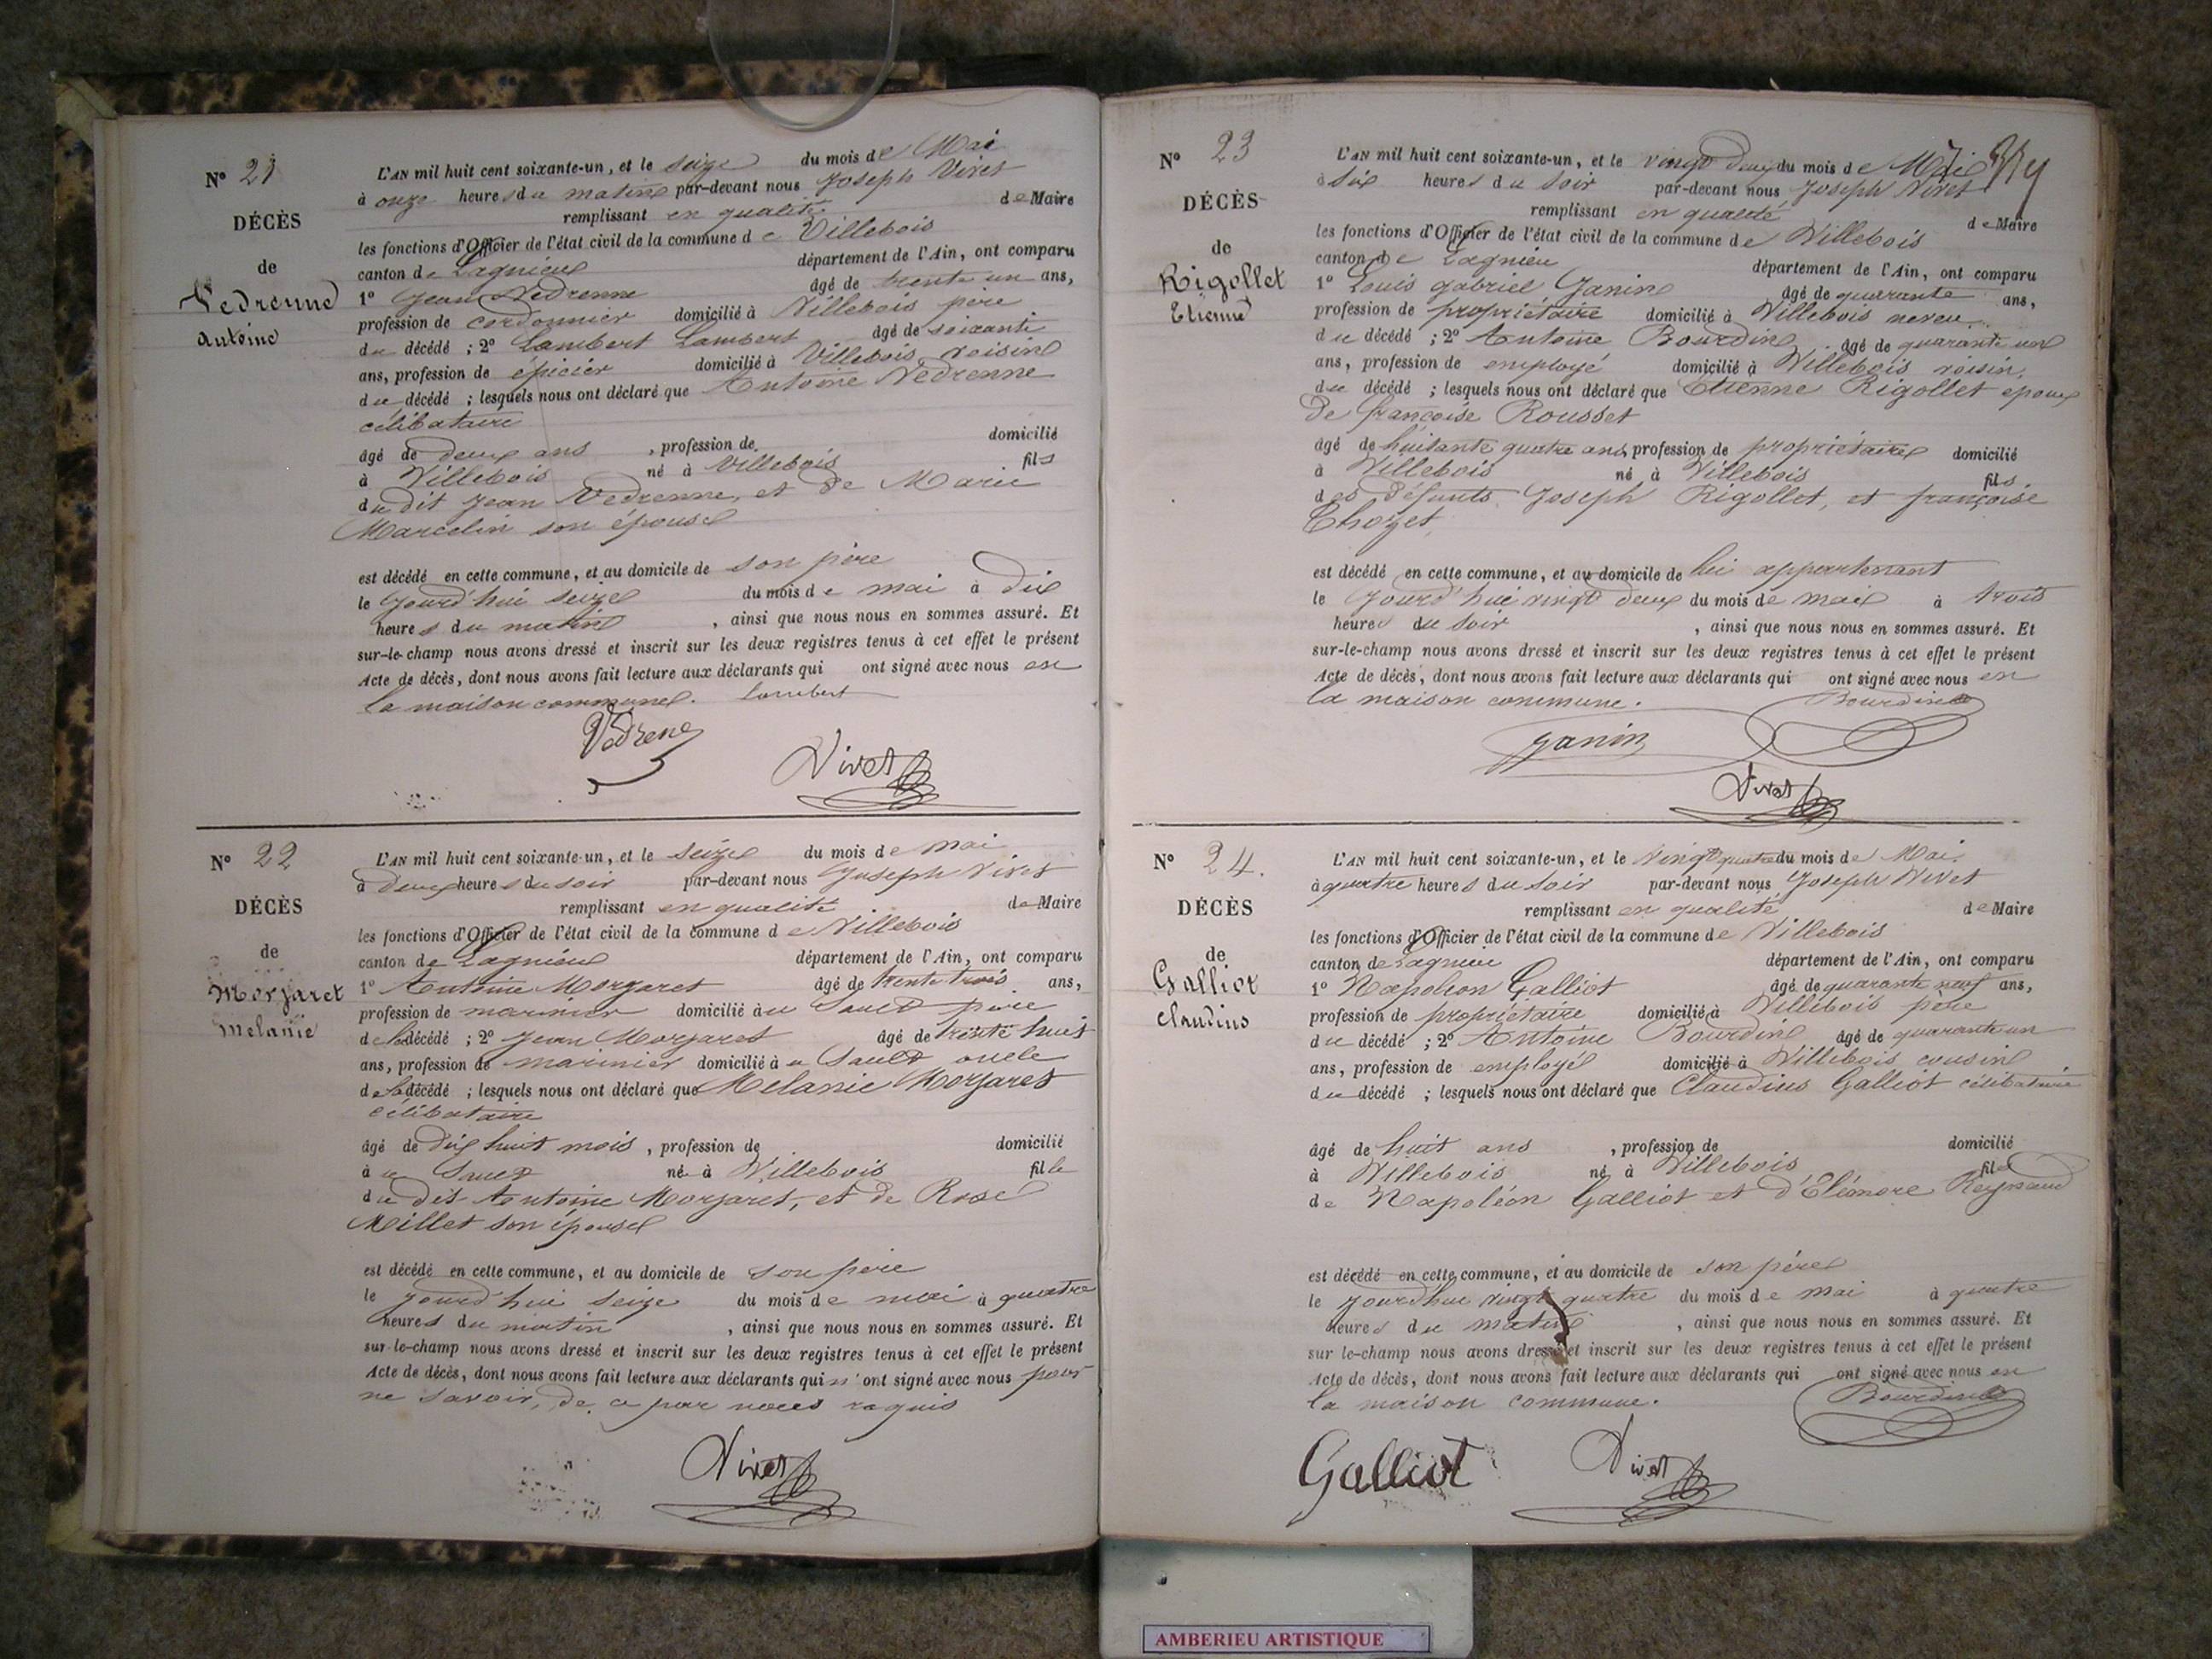 N° 21
DÉCÈS
de
Vedrenne
Antoine
L'AN mil huit cent soixante-un, et le seize du mois de Mai
à onze heures du matin par-devant nous Joseph Vivet
remplissant en qualité de Maire
les fonctions d'Officier de l'état civil de la commune de Villebois
canton de Lagnieu département de l'Ain, ont comparu
1° Jean Vedrenne âgé de trente un ans,
profession de cordonnier domicilié à Villebois père
du décédé ; 2° Lambert Lambert âgé de soixante
ans, profession de épicier domicilié à Villebois voisin
du décédé ; lesquels nous ont déclaré que Antoine Vedrenne
célibataire
âgé de deux ans , profession de domicilié
à Villebois né à Villebois fils
du dit Jean Vedrenne, et de Marie
Marcelin son épouse
est décédé en cette commune, et au domicile de son père
le jourd'hui seize du mois de mai à dix
heures du matin , ainsi que nous nous en sommes assuré. Et
sur-le-champ nous avons dressé et inscrit sur les deux registres tenus à cet effet le présent
Acte de décès, dont nous avons fait lecture aux déclarants qui ont signé avec nous en
la maison commune. Lambert
Vedrene
Vivet
N° 22
DÉCÈS
de
Morjaret
Melanie
L'AN mil huit cent soixante-un, et le seize du mois de mai
à deux heures du soir par-devant nous Joseph Vivet
remplissant en qualité de Maire
les fonctions d'Officier de l'état civil de la commune de Villebois
canton de Lagnieu département de l'Ain, ont comparu
1° Antoine Morjaret âgé de trente trois ans,
profession de marinier domicilié au Sault père
de la décédé ; 2° Jean Morjaret âgé de trente huit
ans, profession de marinier domicilié au Sault oncle
de la décédé ; lesquels nous ont déclaré que Melanie Morjaret
célibataire
âgé de dix huit mois , profession de domicilié
à u Sault né à Villebois fille
du dit Antoine Morjaret, et de Rose
Millet son épouse
est décédé en cette commune, et au domicile de son père
le jourd'hui seize du mois de mai à quatre
heures du matin , ainsi que nous nous en sommes assuré. Et
sur-le-champ nous avons dressé et inscrit sur les deux registres tenus à cet effet le présent
Acte de décès, dont nous avons fait lecture aux déclarants qui n'ont signé avec nous pour
ne savoir, de ce par nous requis
Vivet
N° 23
DÉCÈS
de
Rigollet
Etienne
L'AN mil huit cent soixante-un, et le vingt deux du mois de Mai
à six heures du soir par-devant nous Joseph Vivet
remplissant en qualité de Maire
les fonctions d'Officier de l'état civil de la commune de Villebois
canton de Lagnieu département de l'Ain, ont comparu
1° Louis gabriel Janin âgé de quarante ans,
profession de propriétaire domicilié à Villebois neveu
du décédé ; 2° Antoine Bourdin âgé de quarante un
ans, profession de employé domicilié à Villebois voisin.
du décédé ; lesquels nous ont déclaré que Etienne Rigollet epoux
de françoise Rousset
âgé de huitante quatre ans, profession de propriétaire domicilié
à Villebois né à Villebois fils
des défunts Joseph Rigollet, et françoise
Chozet
est décédé en cette commune, et au domicile de lui appartenant
le jourd'hui vingt deux du mois de mai à trois
heures du soir , ainsi que nous nous en sommes assuré. Et
sur-le-champ nous avons dressé et inscrit sur les deux registres tenus à cet effet le présent
Acte de décès, dont nous avons fait lecture aux déclarants qui ont signé avec nous en
la maison commune. Bourdin
Janin
Vivet
N° 24.
DÉCÈS
de
Galliot
Claudius
L'AN mil huit cent soixante-un, et le vingt quatre du mois de Mai.
à quatre heures du soir par-devant nous Joseph Vivet
remplissant en qualité de Maire
les fonctions d'Officier de l'état civil de la commune de Villebois
canton de Lagnieu département de l'Ain, ont comparu
1° Napoléon Galliot âgé de quarante neuf ans,
profession de propriétaire domicilié à Villebois père
du décédé ; 2° Antoine Bourdin âgé de quarante un
ans, profession de employé domicilié à Villebois cousin
du décédé ; lesquels nous ont déclaré que Claudius Galliot célibataire
âgé de huit ans , profession de domicilié
à Villebois né à Villebois fils
de Napoléon Galliot et d'Eléonore Reynaud
est décédé en cette commune, et au domicile de son père
le jourd'hui vingt quatre du mois de mai à quatre
heures du matin , ainsi que nous nous en sommes assuré. Et
sur le-champ nous avons dressé et inscrit sur les deux registres tenus à cet effet le présent
Acte de décès, dont nous avons fait lecture aux déclarants qui ont signé avec nous en
la maison commune. Bourdin
Galliot Vivet
AMBERIEU ARTISTIQUE